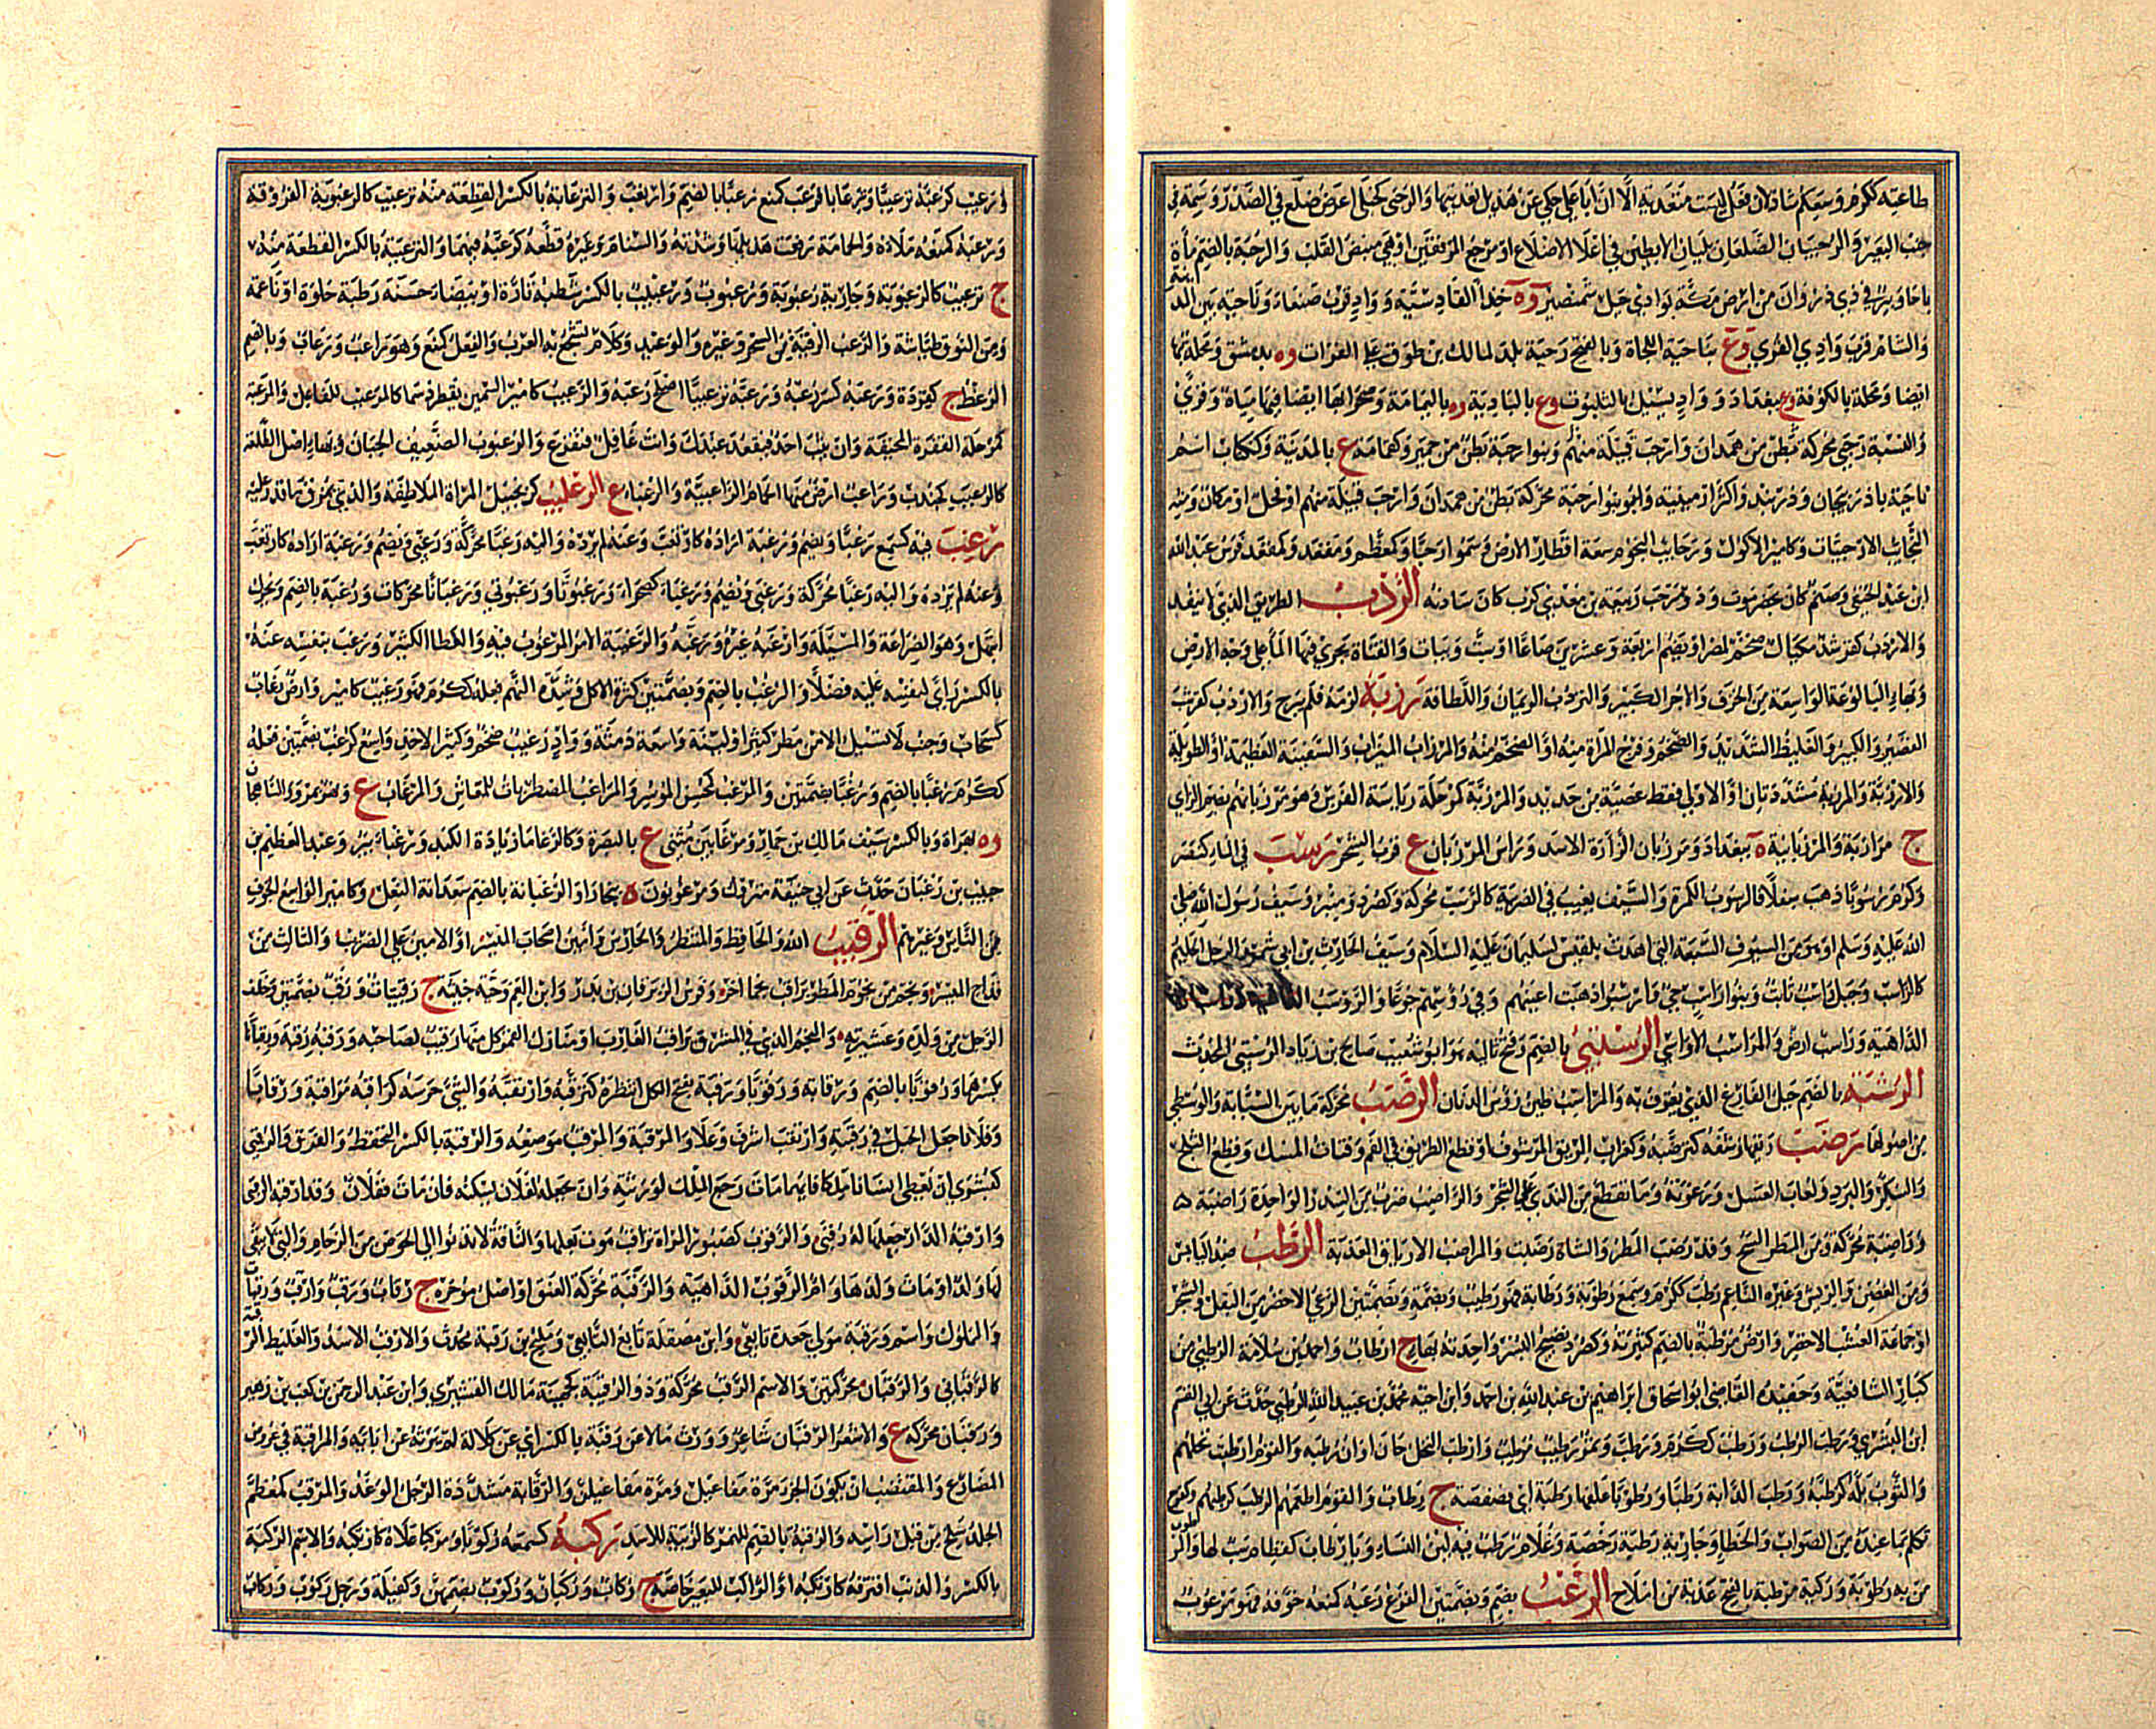 طاعته ككرم وسعكم شاذ لان فعل ليست متعدية الا ان ابا علي حكى عن هذيل تعديتها والرحى كحبلى اعرض ضلع في الصدر وسمة في
جنب البعير والرحبيان الضلعان يليان الابطين في اعلا الاضلاع او مرجع المرفقين او هي منبض القلب والرحبة بالضم مأة
باجا وبير في ذي ذروان من ارض مكة بوادي جبل شمنصير وه حذا القادسية وواد قرب صنعاء وناحية بين المدينة
والشام قرب وادي القرى وع بناحية اللجاة وبالفتح رحبة بلد لمالك بن طوق على الفرات وه بدمشق ومحلة بها
ايضا ومحلة بالكوفة وع ببغداد وواد يسيل بالثلبوت وع بالبادية وه باليمامة وصحرا بها ايضا فيها مياه وقرى
والنسبة رحبي محركة بطن من همدان وارحب قبيلة منهم وبنو رحبة بطن من حمير وكقمامة ع بالمدينة وككتاب اسم
ناحية باذربيجان ودربند واكثر ارمينية وبنو رحبة محركة بطن من همدان وارحب قبيلة منهم او فحل او مكان ومنه
النجايب الارحبيات وكامير الاكول ورحايب التخوم سعة اقطار الارض وسموا رحبا وكمعظم ومقعد وكمقعد فرس عبد الله
ابن عبد الحنفي وصنم كان بحضرموت وذو مرحب ربيعة بن معدي كرب كان سادنه الرذب الطريق الذي لا ينفذ
والاردب كقرشب مكيال ضخم لمصر او يضم اربعة وعشرين صاعا او ست ويبات والقناة يجري فيها الما على وجه الارض
وبهاء البالوعة الواسعة من الخزف والاجر الكبير والتردب الرئمان واللطافة رزبه لزمه فلم يبرح والارزب كقرشب
القصير والكبير والغليظ الشديد والضخم وفرج المراة منه او الضخم منه والمرزاب الميزاب والسفينة العظيمة او الطويلة
والارزبة والمرزبة مشددتان او الاولى فقط عصية من حديد والمرزبة كمرحلة رياسة الفرس وهو مرزبانهم بضم الزاي
ج مرازبة والمرزبانية ه ببغداد ومرزبان الزارة الاسد وراس المرزبان ع قرب الشحر رسب في الماء كنصر
وكرم رسوبا ذهب سفلا فالرسوب الكمرة والسيف يغيب في الضريبة كالرسب محركة وكصرد ومنبر وسيف رسول الله صلى
الله عليه وسلم او هو من السيوف السبعة التي اهدت بلقيس لسليمان عليه السلام وسيف الحارث بن ابي شمر والرجل الحليم
كالراسب وجبل راسب ثابت وبنو راسب حي وارسبوا ذهبت اعينهم في رؤسهم جوعا والروسب
الداهية وراسب ارض والمراسب الاواسي الرستبي بالضم وفتح ثالثه هو ابو شعيب صالح بن زياد الرستبي المحدث
الرشبة بالضم جبل الفارغ الذي يغرف به والمراشب طين رؤس الدنان الرصب محركة ما بين السبابة والوسطى
من اصولها رضب ريقها رشفه كترضبه وكغراب الريق المرشوف او قطع الطريق في الفم وفتات المسك وقطع الثلج
والسكر والبرد ولعاب العسل ورغوته وما تقطع من الندى على الشجر والراضب ضرب من السدر الواحدة راضبة
وراضبة محركة ومن المطر السح وقد رضب المطر والشاة ربضت والمراضب الارياق العذبة الرطب ضد اليابس
ومن الغصن والريش وغيره الناعم رطب ككرم وسمع رطوبة ورطابة فهو رطيب وبضمة وبضمتين الرعي الاخضر من البقل والشجر
او جماعة العشب الاخضر وارض مرطبة بالضم كثيرته وكصرد نضيج البسر واحدته بهاء ج ارطاب واحمد بن سلامة الرطبي من
كبار الشافعية وحفيده القاضي ابو اسحاق ابراهيم بن عبد الله بن احمد وابن اخيه محمد بن عبيد الله الرطبي حدث عن ابي القسم
ابن البسري ورطب الرطب ورطب ككرم ورطب وتمر رطيب مرطب وارطب النخل حان اوان رطبه والقوم ارطب نخلهم
والثوب بله كرطبه ورطب الدابة رطبا ورطوبا علفها رطبة اي فصفصة ج رطاب والقوم اطعمهم الرطب كرطبهم وكفرح
تكلم بما عنده من الصواب والخطاء وجارية رطبة رخصة وغلام رطب فيه لين النساء ويا رطاب كقطام سب لها والرطوب
من به رطوبة وركية مرطبة بالفتح عذبة من املاح الرعب بضم وبضمتين الفزع رعبه كمنعه خوفه فهو مرعوب
ورعيب كرعبه ترعيبا وترعابا فرعب كمنع رعبا بالضم وارتعب والترعابة بالكسر القطعة منه ترعيب كالرعبوبة الفروقة
ورعبه كمنعه ملاه والحمامة رفعت هديلها وشدته والسنام وغيره قطعه كرعبه فيهما والترعيبة بالكسر القطعة منه
ج ترعيب كالرعبوبة وجارية رعبوبة ورعبوب ورعبيب بالكسر شطبة تارة او بيضاء حسنة رطبة حلوة او ناعمة
ومن النوق طياشة والرعب الرقية من السحر وغيره والوعيد وكلام تسجع به العرب والفعل كمنع وهو راعب ورعاب وبالضم
الرعظ ج كقردة ورعبه كسر رعبه ورعبه ترعيبا اصلح رعبه والرعيب كامير السمين يقطر دسما كالمرعبب للفاعل والمرعبة
كمرحلة القفزة المخيفة وان يثب احد فيقعد عندك وانت غافل فتفزع والرعبوب الضعيف الجبان وبهاء اصل الطلعة
كالرعبب كجندب وراعب ارض منها الحمام الراعبية والرعباء ع الرغليب كزنجبيل المراة الملاطفة والذي يمزق ما قدر عليه
رغب فيه كسمع رغبا ويضم ورغبة اراده كارتغب وعنه لم يرده واليه رغبا محركة ورغبى ويضم ورغبة اراده كارتغب
وعنه لم يرده واليه رغبا محركة ورغبى ويضم ورغباء كصحراء ورغبوتا ورغبوتى ورغبانا محركات ورغبة بالضم ويحرك
ابتهل وهو الضراعة والمسئلة وارغبه غيره ورغبه والرغيبة الامر المرغوب فيه والعطا الكثير ورغب بنفسه عنه
بالكسر راى لنفسه عليه فضلا والرغب بالضم وبضمتين كثرة الاكل وشدة النهم فعله ككرم فهو رغيب كامير وارض رغاب
كسحاب وجنب لا تسيل الا من مطر كثير او لينة واسعة دمثة وواد رغيب ضخم وكثير الاخذ واسع كرغب بضمتين فعله
ككرم رغبا بالضم ورغبا بضمتين والمرغب كمحسن الموسر والمراغب المضطربات للمعاش والمرغاب ع ونهر بمرو الشاهجان
وه بهراة وبالكسر سيف مالك بن حمار ومرغابين مثنى ع بالبصرة وكالرغامى زيادة الكبد ورغباء بير وعبد العظيم بن
حبيب بن رغبان حدث عن ابي حنيفة متروك ومرغبون ه ببخارا والرغبانة بالضم سعدانة النعل وكامير الواسع الجوف
من الناس وغيرهم الرقيب الله والحافظ والمنتظر والحارس وامين اصحاب الميسر او الامين على الضريب والثالث من
قداح الميسر ونجم من نجوم المطر يراقب نجما اخر وفرس الزبرقان بن بدر وابن العم وحية خبيثة ج رقيبات ورقب بضمتين وخلف
الرجل من ولده وعشيرته والنجم الذي في المشرق يراقب الغارب او منازل القمر كل منها رقيب لصاحبه ورقبه رقبة ورقبانا
بكسرهما ورقوبا بالضم ورقابة ورقوبا ورقبة بفتح الكل انتظره كترقبه وارتقبه والشئ حرسه كراقبه مراقبة ورقابا
وفلانا جعل الحبل في رقبته وارتقب اشرف وعلا والمرقبة والمرقب موضعه والرقبة بالكسر التحفظ والفرق والرقبى
كبشرى ان يعطي انسانا ملكا فايهما مات رجع الملك لورثته وان يجعله لفلان يسكنه فان مات ففلان وقد ارقبه الرقبى
وارقبه الدار جعلها له رقبى والرقوب كصبور المراة تراقب موت بعلها والناقة لا تدنو الى الحوض من الزحام والتي لا يبقى
لها ولد او مات ولدها وام الرقوب الداهية والرقبة محركة العنق او اصل مؤخره ج رقاب ورقب وارقب ورقبات
والمملوك واسم ورقبة مولى جعدة تابعي وابن مصقلة تابع التابعي ومليح بن رقبة محدث والارقب الاسد والغليظ الرقبة
كالرقباني والرقبان محركتين والاسم الرقب محركة وذو الرقيبة كجهينة مالك القشيري وابن عبد الرحمن بن كعب بن زهير
ورقبان محركة ع والاشعر الرقبان شاعر وورث مالا عن رقبة بالكسر اي عن كلالة لم يرثه عن ابائه والمراقبة في عروض
المضارع والمقتضب ان يكون الجزء مرة مفاعيل ومرة مفاعيلن والرقابة مشددة الرجل الوغد والمرقب كمعظم
الجلد يسلخ من قبل راسه والرقبة بالضم للنمر كالزبية للاسد ركبه كسمعه ركوبا ومركبا علاه كارتكبه والاسم الركبة
بالكسر والذنب اقترفه كارتكبه او الراكب للبعير خاصة ج ركاب وركبان وركوب بضمهن وكفيلة ورجل ركوب وركاب